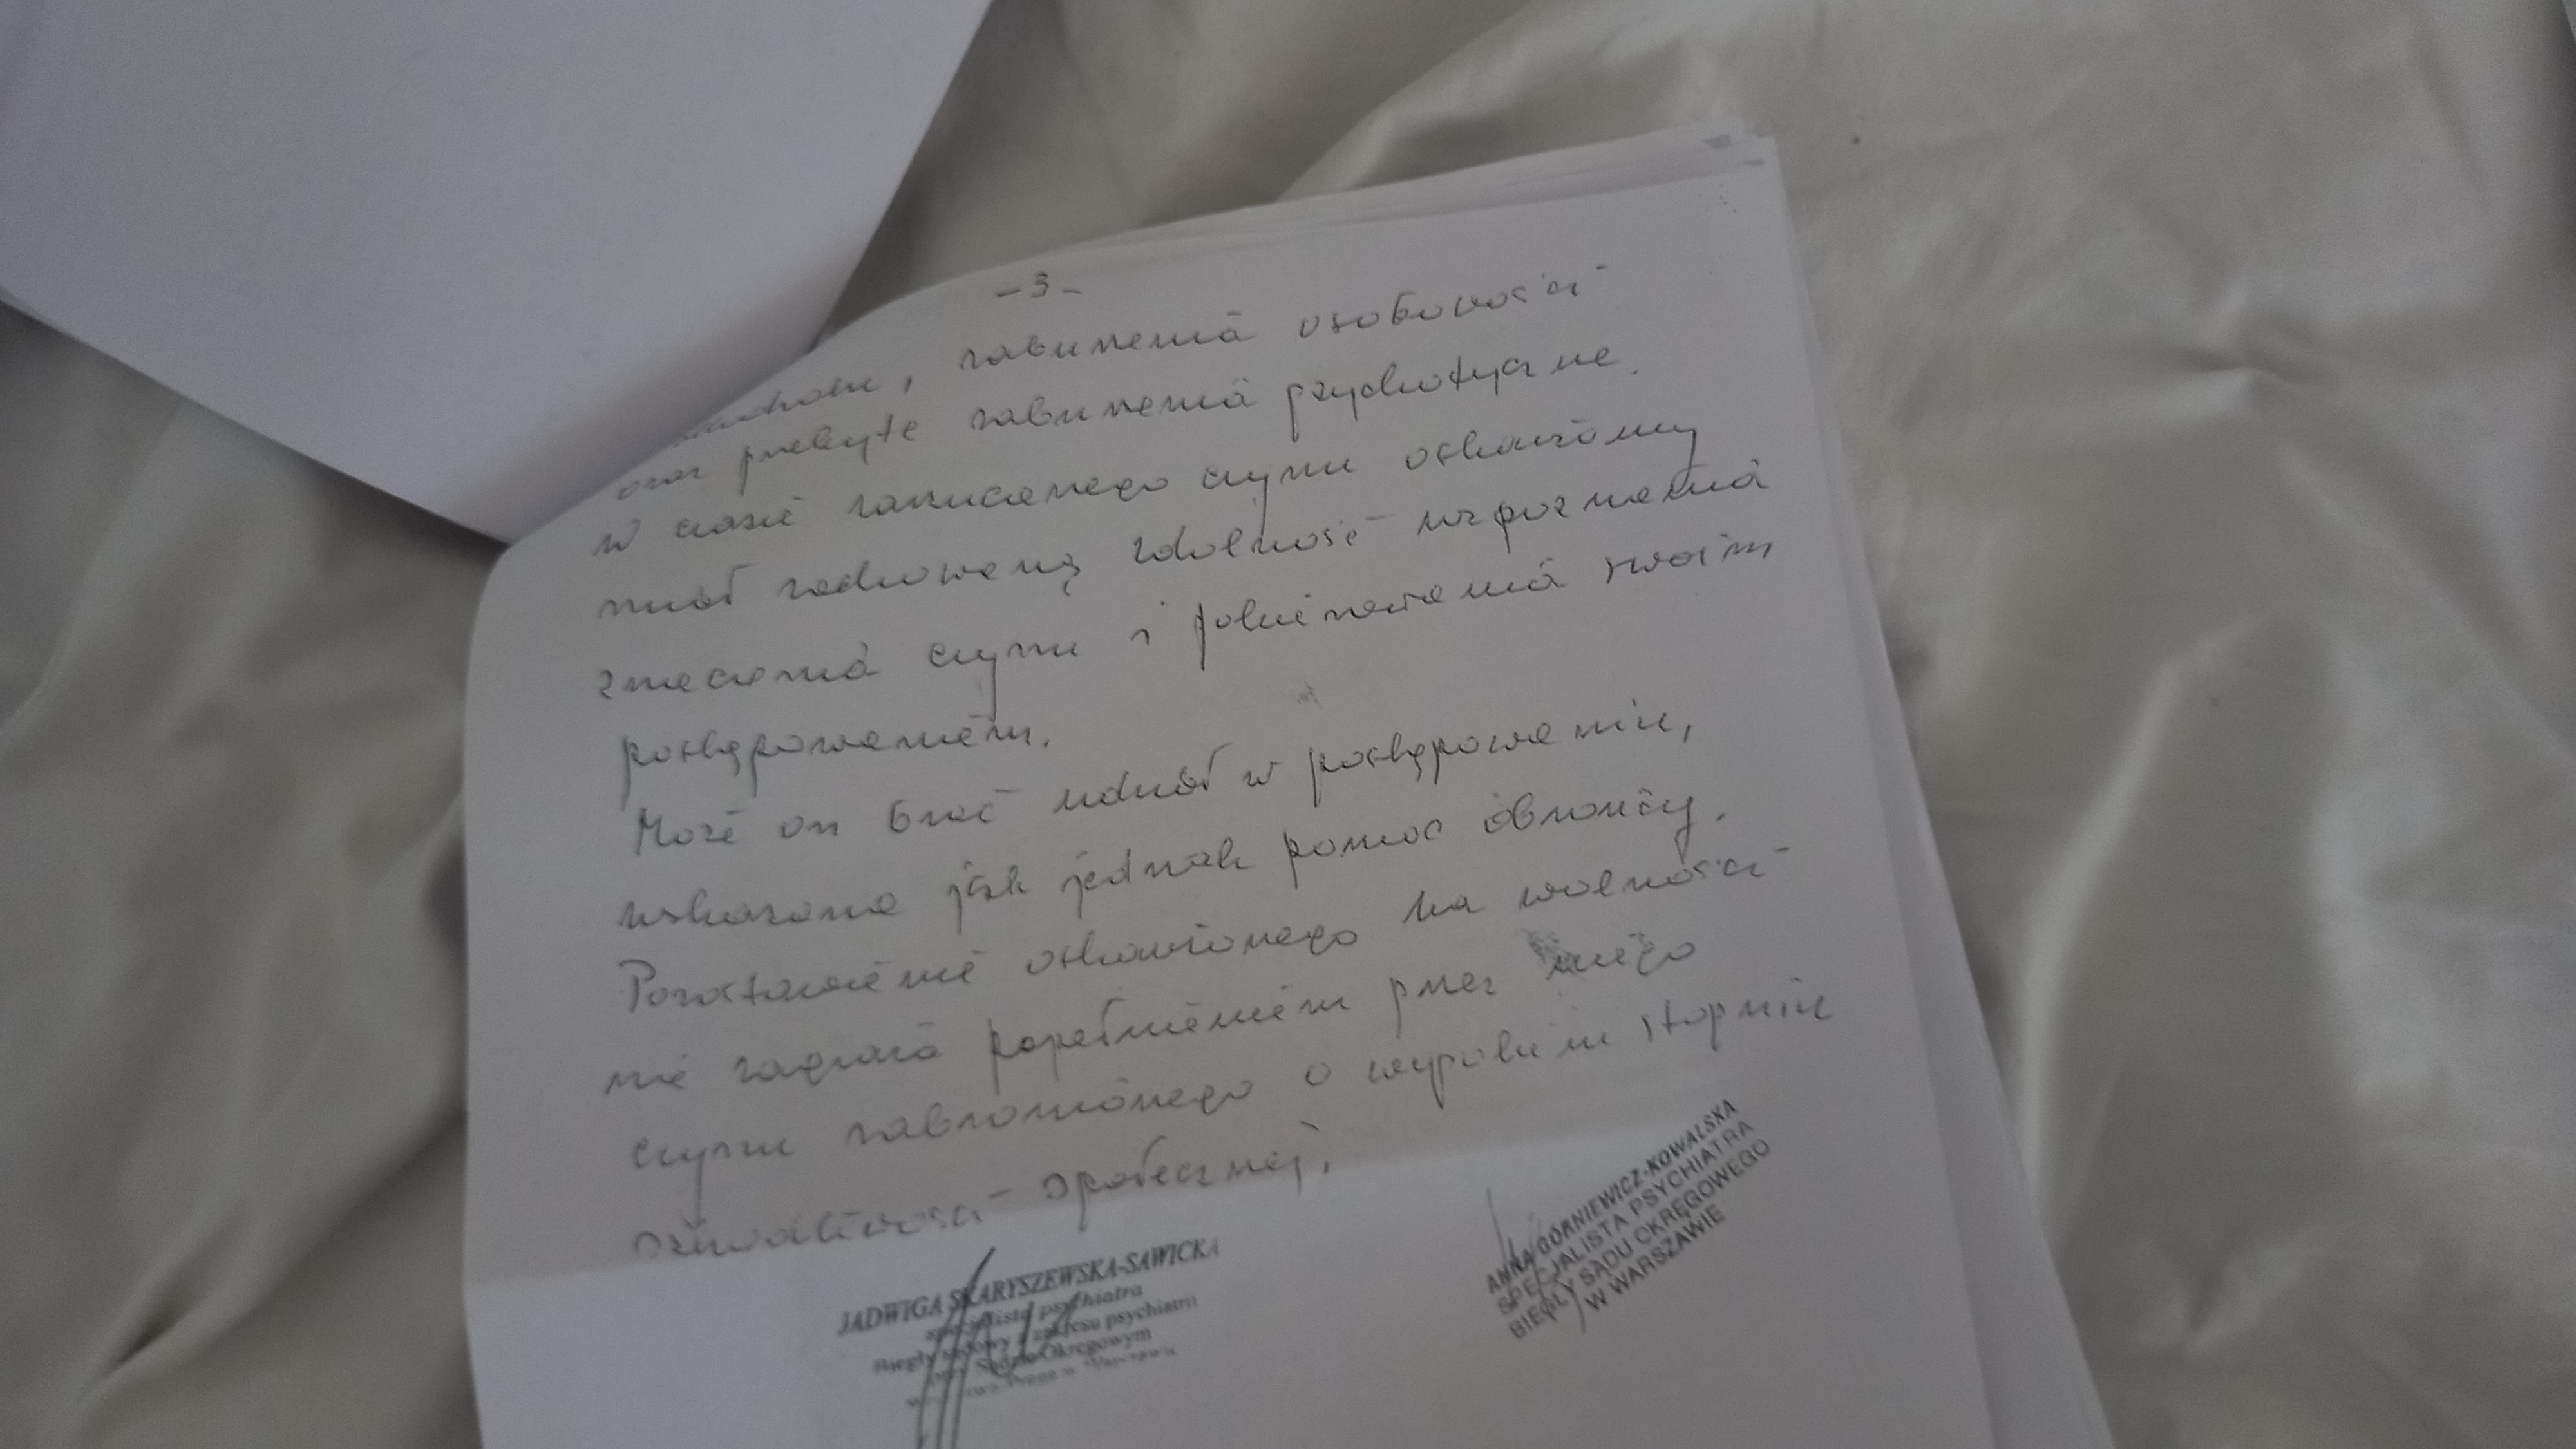 – 3 –
, zaburzenia osobowości
oraz przebyte zaburzenia psychotyczne.
W czasie zarzucanego czynu oskarżony
miał zachowaną zdolność rozpoznania
znaczenia czynu i pokierowania swoim
postępowaniem.
Może on brać udział w postępowaniu,
wskazana jest jednak pomoc obrońcy.
Pozostawienie oskarżonego na wolności
nie zagraża popełnieniem przez niego
czynu zabronionego o wysokim stopniu
szkodliwości społecznej.
JADWIGA SKARYSZEWSKA-SAWICKA
specjalista psychiatra
Biegły sądowy z zakresu psychiatrii
przy Sądzie Okręgowym
Warszawa-Praga w Warszawie
ANNA GÓRNIEWICZ-KOWALSKA
SPECJALISTA PSYCHIATRA
BIEGŁY SĄDU OKRĘGOWEGO
W WARSZAWIE